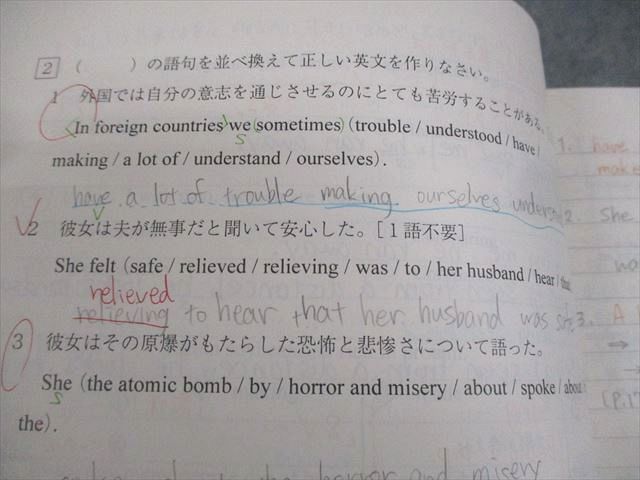 2 (　　) の語句を並べ換えて正しい英文を作りなさい。
1 外国では自分の意志を通じさせるのにとても苦労することがある。
In foreign countries we (sometimes) (trouble / understood / have /
S
making / a lot of / understand / ourselves).
have a lot of trouble making ourselves
V
2 彼女は夫が無事だと聞いて安心した。[1語不要]
She felt (safe / relieved / relieving / was / to / her husband / hear /
relieved
relieving to hear that her husband was
3 彼女はその原爆がもたらした恐怖と悲惨さについて語った。
She (the atomic bomb / by / horror and misery / about / spoke /
S
the).
horror and misery
1. have
make
2. She
no
3. A
→
→
(P.17